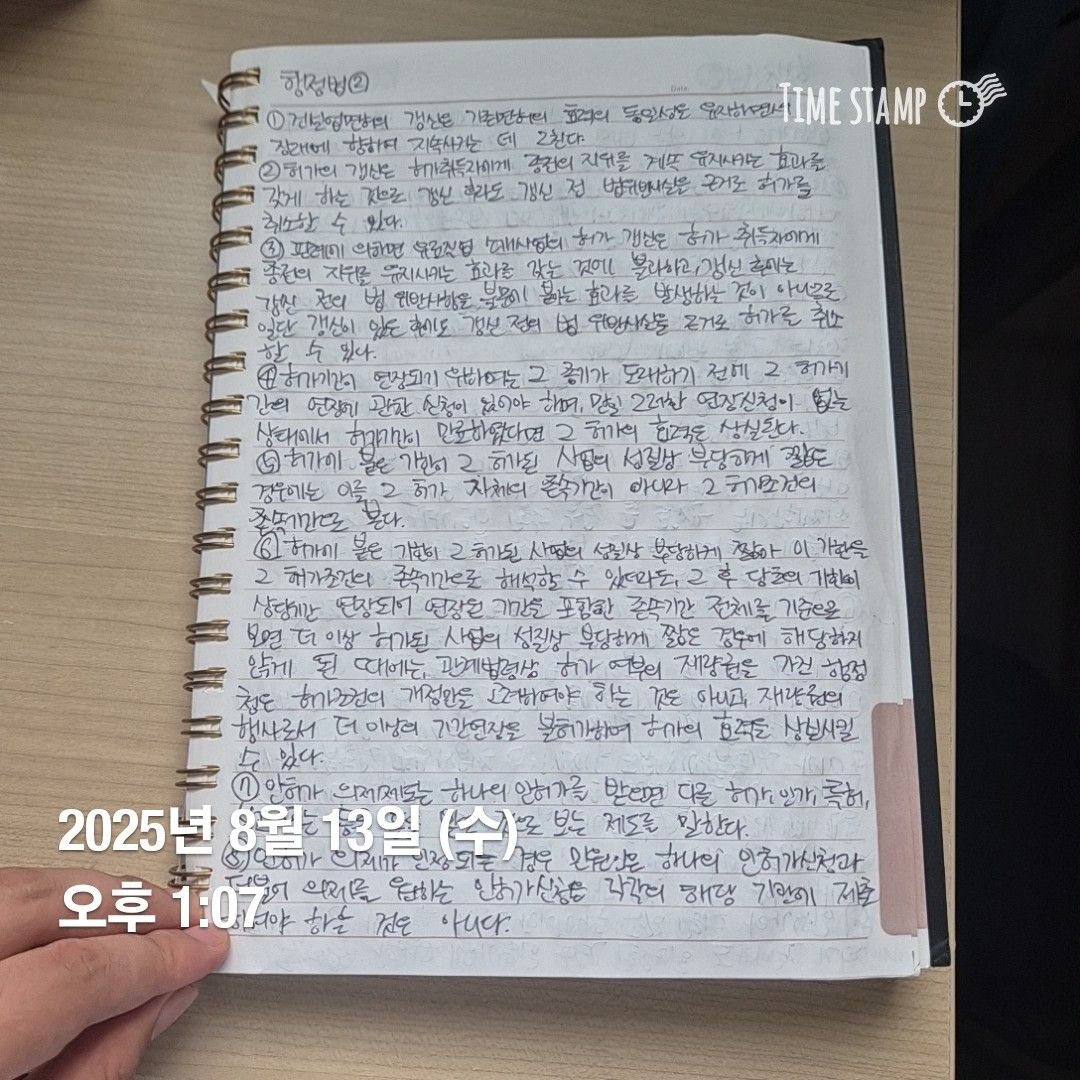 행정법②
Date.
TIME STAMP
① 건설업면허의 갱신은 기존면허의 효력의 동일성을 유지하면서
장래에 향하여 지속시키는 데 그친다.
② 허가의 갱신은 허가취득자에게 종전의 지위를 계속 유지시키는 효과를
갖게 하는 것으로 갱신 후라도 갱신 전 법위반사실을 근거로 허가를
취소할 수 있다.
③ 판례에 의하면 유료직업 소개사업의 허가 갱신은 허가 취득자에게
종전의 지위를 유지시키는 효과를 갖는 것에 불과하고, 갱신 후에는
갱신 전의 법 위반사항을 불문에 붙이는 효과를 발생하는 것이 아니므로
일단 갱신이 있은 후에도 갱신 전의 법 위반사실을 근거로 허가를 취소
할 수 있다.
④ 허가기간이 연장되기 위하여는 그 종기가 도래하기 전에 그 허가기
간의 연장에 관한 신청이 있어야 하며, 만일 그러한 연장신청이 없는
상태에서 허가기간이 만료하였다면 그 허가의 효력은 상실된다.
⑤ 허가에 붙은 기한이 그 허가된 사업의 성질상 부당하게 짧은
경우에는 이를 그 허가 자체의 존속기간이 아니라 그 허가조건의
존속기간으로 본다.
⑥ 허가에 붙은 기한이 그 허가된 사업의 성질상 부당하게 짧아 이 기한을
그 허가조건의 존속기간으로 해석할 수 있더라도, 그 후 당초의 기한이
상당기간 연장되어 연장된 기간을 포함한 존속기간 전체를 기준으로
보면 더 이상 허가된 사업의 성질상 부당하게 짧은 경우에 해당하지
않게 된 때에는, 관계법령상 허가 여부의 재량권을 가진 행정
청은 허가조건의 개정만을 고려하여야 하는 것은 아니고, 재량권의
행사로서 더 이상의 기간연장을 불허가하여 허가의 효력을 상실시킬
수 있다.
⑦ 인허가 의제제도는 하나의 인허가를 받으면 다른 허가, 인가, 특허,
로 보는 제도를 말한다.
⑧ 인허가 의제가 인정되는 경우 민원인은 하나의 인허가신청과
더불어 의제를 원하는 인허가신청을 각각의 해당 기관에 제출
하여야 하는 것은 아니다.
2025년 8월 13일 (수)
오후 1:07